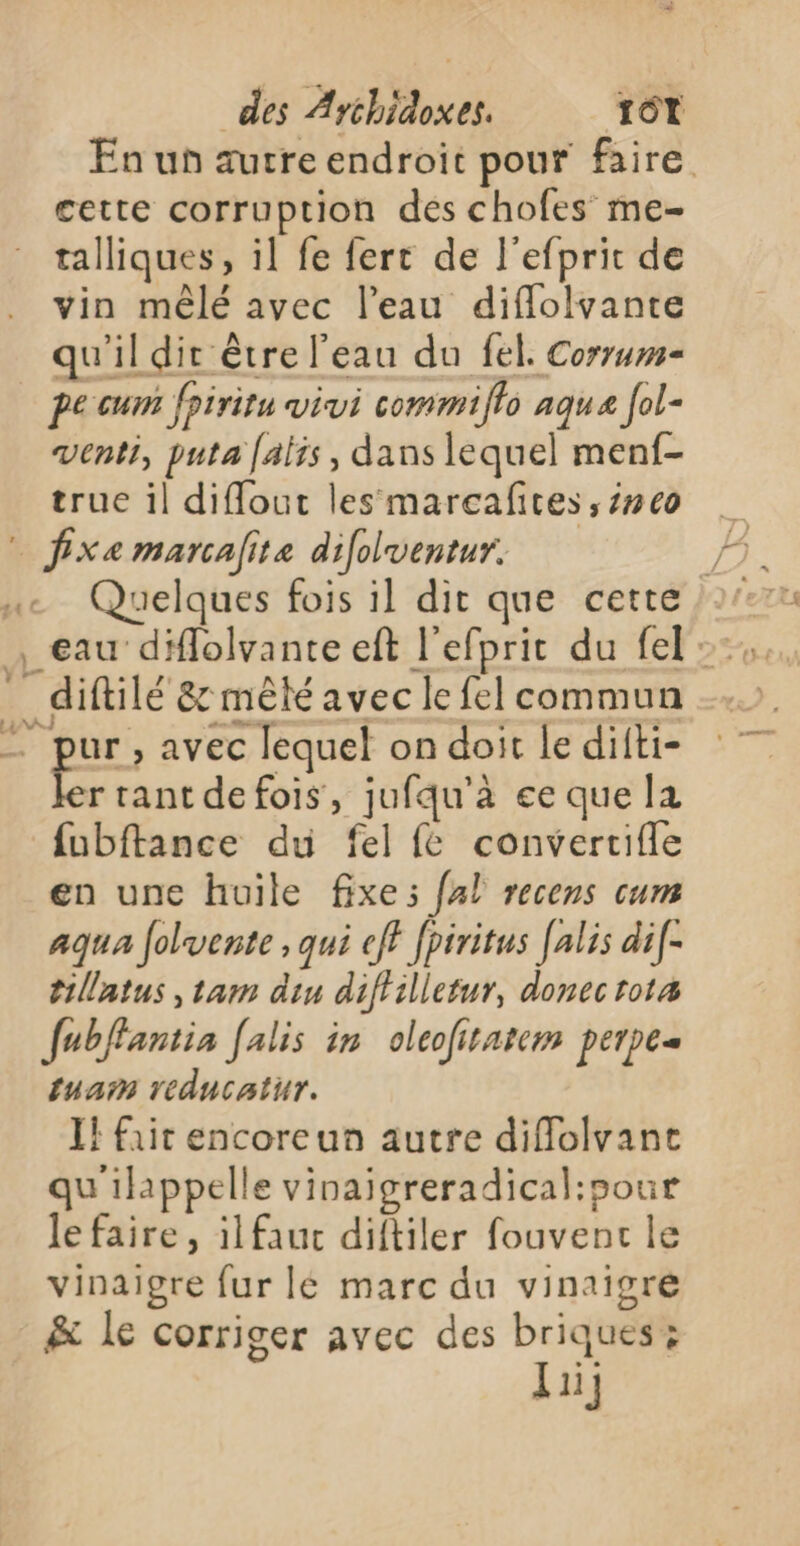 des Archidoxes. 101
En un autre endroit pour faire
cette corruption des choſes me-
talliques, il ſe ſert de l'eſprit de
vin mêlé avec l'eau diſſolvante
qu'il dit être l'eau du ſel. Corrum-
pe cum ſpiritu vivi commiſto aquæ ſol-
venti, puta ſalis, dans lequel menſ-
true il diſſout les marcaſites, in eo
fixæ marcaſitæ diſolventur.
Quelques fois il dit que cette
eau diſſolvante eſt l'eſprit du ſel
diſtilé & mêlé avec le ſel commun
pur, avec lequel on doit le diſti-
ler tant de fois, juſqu'à ce que la
ſubſtance du ſel ſe convertiſſe
en une huile fixe; ſal recens cum
aqua ſolvente, qui eſt ſpiritus ſalis diſ-
tillatus, tam diu diſtilletur, donec tota
ſubſtantia ſalis in oleoſitatem perpe-
tuam reducatur.
Il fait encore un autre diſſolvant
qu'il appelle vinaigre radical: pour
le faire, il faut diſtiler ſouvent le
vinaigre ſur le marc du vinaigre
& le corriger avec des briques;
I iij